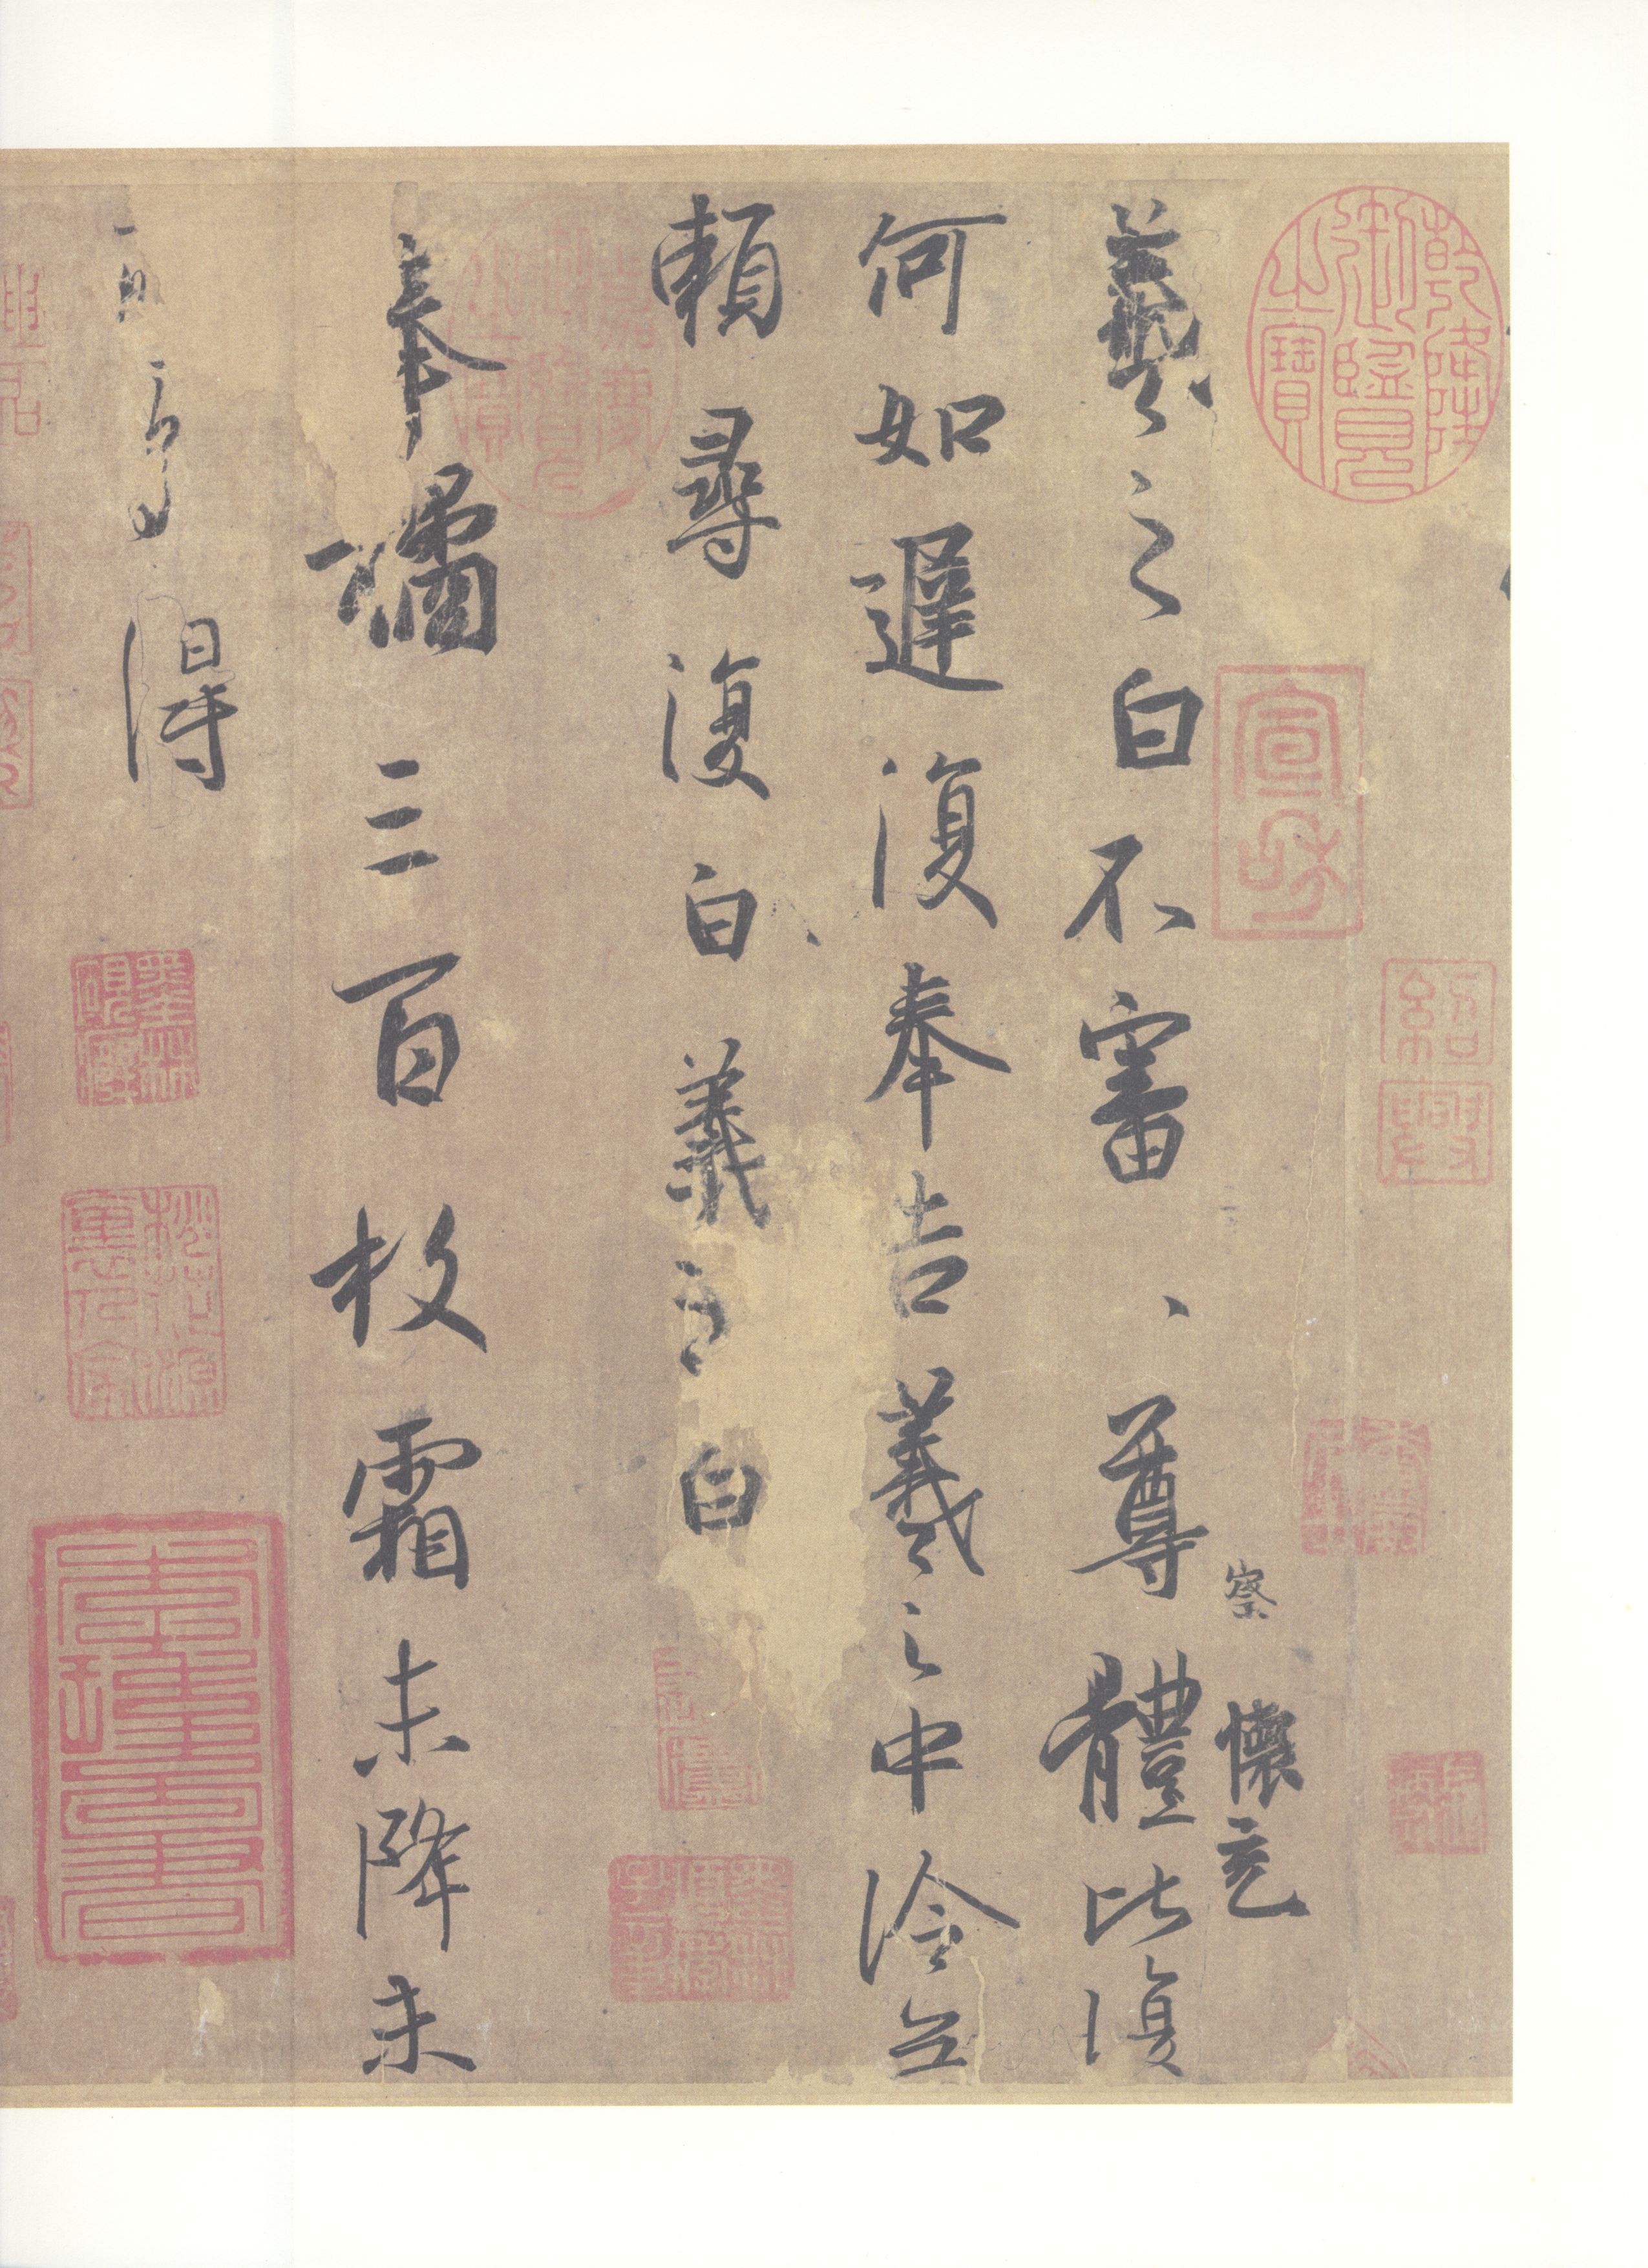 乾隆御覽之寶
宣和
紹興
察
懷充
羲之白不審、尊體比復
何如遲復奉告羲之中冷無
賴尋復白羲之白
嘉慶御覽之寶
奉橘三百枚霜未降未
可多得